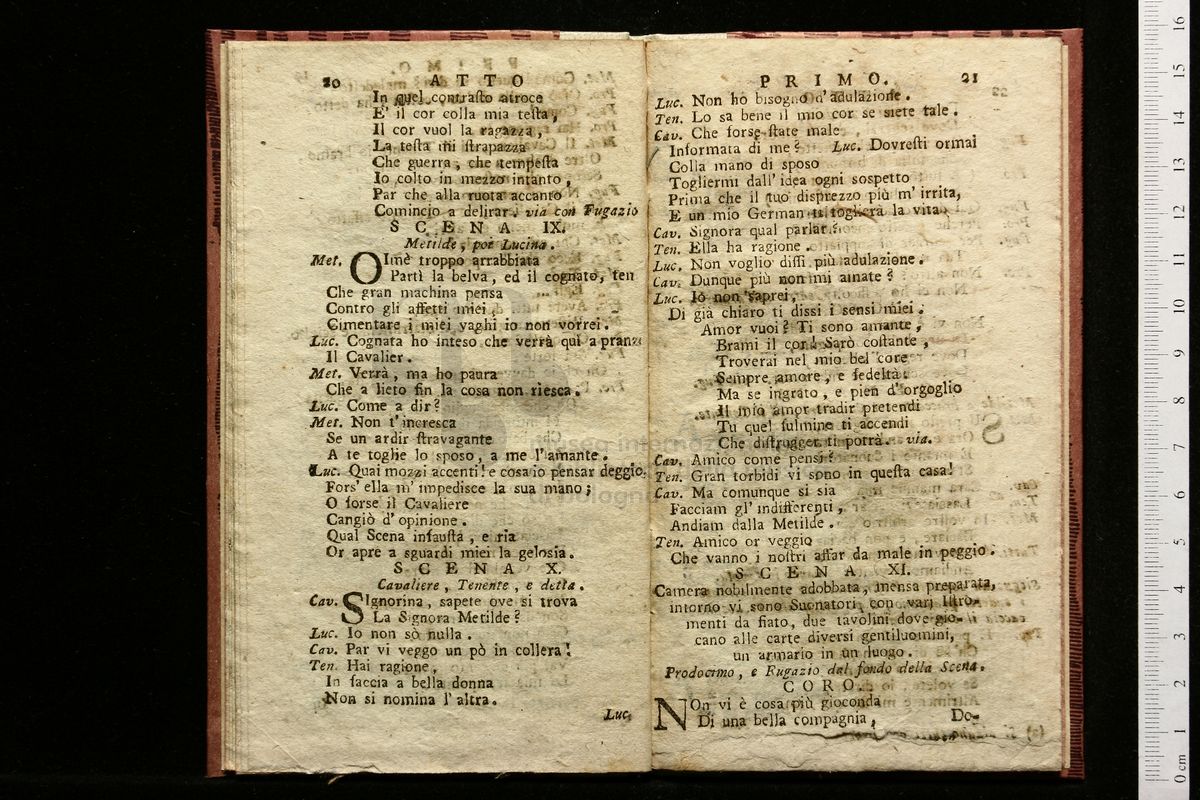 20 ATTO
In quel contrasto atroce
E' il cor colla mia testa,
Il cor vuol la ragazza,
La testa mi strapazza
Che guerra, che tempesta
Io colto in mezzo intanto,
Par che alla ruota accanto
Comincio a delirar. via con Fugazio
SCENA IX.
Metilde, poi Lucina.
Met. OImè troppo arrabbiata
Partì la belva, ed il cognato, ten
Che gran machina pensa
Contro gli affetti miei,
Cimentare i miei vaghi io non vorrei.
Luc. Cognata ho inteso che verrà qui a pranz
Il Cavalier.
Met. Verrà, ma ho paura
Che a lieto fin la cosa non riesca.
Luc. Come a dir?
Met. Non t'incresca
Se un ardir stravagante
A te toglie lo sposo, a me l'amante.
Luc. Quai mozzi accenti! e cosa io pensar deggio,
Fors' ella m' impedisce la sua mano;
O forse il Cavaliere
Cangiò d' opinione.
Qual Scena infausta, e ria
Or apre a sguardi miei la gelosia.
SCENA X.
Cavaliere, Tenente, e detta.
Cav. SIgnorina, sapete ove si trova
La Signora Metilde?
Luc. Io non sò nulla.
Cav. Par vi veggo un pò in collera!
Ten. Hai ragione,
In faccia a bella donna
Non si nomina l'altra.
Luc.
PRIMO. 21
Luc. Non ho bisogno d'adulazione.
Ten. Lo sa bene il mio cor se siete tale.
Cav. Che forse state male
Informata di me? Luc. Dovresti ormai
Colla mano di sposo
Togliermi dall' idea ogni sospetto
Prima che il tuo disprezzo più m' irrita,
E un mio German ti toglierà la vita.
Cav. Signora qual parlar?
Ten. Ella ha ragione.
Luc. Non voglio dissi più adulazione.
Cav. Dunque più non mi amate?
Luc. Io non saprei,
Di già chiaro ti dissi i sensi miei.
Amor vuoi? Ti sono amante,
Brami il cor? Sarò costante,
Troverai nel mio bel core
Sempre amore, e fedeltà.
Ma se ingrato, e pien d'orgoglio
Il mio amor tradir pretendi
Tu quel fulmine ti accendi
Che distrugger ti potrà. via.
Cav. Amico come pensi?
Ten. Gran torbidi vi sono in questa casa!
Cav. Ma comunque si sia
Facciam gl' indifferenti,
Andiam dalla Metilde.
Ten. Amico or veggio
Che vanno i nostri affar da male in peggio.
SCENA XI.
Camera nobilmente adobbata, mensa preparata,
intorno vi sono Suonatori con varj Istro-
menti da fiato, due tavolini dove gio-
cano alle carte diversi gentiluomini,
un armario in un luogo.
Prodocimo, e Fugazio dal fondo della Scena.
CORO.
NOn vi è cosa più gioconda
Di una bella compagnia,
Do-